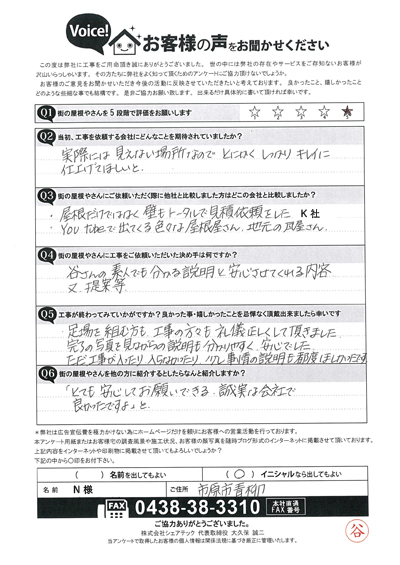 Voice!
お客様の声をお聞かせください
この度は弊社に工事をご用命頂き誠にありがとうございました。世の中には弊社の存在やサービスをご存知ないお客様が
沢山いらっしゃいます。その方たちに弊社をよく知って頂くためのアンケートにご協力頂けないでしょうか。
お客様のご意見をお聞かせいただき今後の活動に反映させていただきたいと考えております。良かったこと、嬉しかったこと
どのような些細な事でも結構です。是非ご協力お願い致します。出来るだけ具体的に書いて頂ければ幸いです。
Q1 街の屋根やさんを5段階で評価をお願いします ☆ ☆ ☆ ☆ ★
Q2 当初、工事を依頼する会社にどんなことを期待されていましたか?
実際には見えない場所なのでとにかくしっかりキレイに
仕上げてほしいと.
Q3 街の屋根やさんにご依頼いただく際に他社と比較しました方はどこの会社と比較しましたか?
・屋根だけではなく壁もトータルで見積依頼をした K社
・You tubeで出てくる色々な屋根屋さん、地元の瓦屋さん.
Q4 街の屋根やさんに工事をご依頼いただいた決め手は何ですか?
谷さんの素人でも分かる説明と安心させてくれる内容
又、提案等.
Q5 工事が終わってみていかがですか?良かった事・嬉しかったことを忌憚なく頂戴出来ましたら幸いです
足場を組む方も、工事の方々も礼儀正しくして頂きました.
完了の写真を見ながらの説明も分かりやすく、安心でした.
ただ工事が入ったり入らなかったり、少し事情の説明も都度ほしかったです
Q6 街の屋根やさんを他の方に紹介するとしたらなんと紹介しますか?
「とても安心してお願いできる、誠実な会社で
良かったですよ」と.
*弊社は広告宣伝費を極力かけない為にホームページだけを頼りにお客様への営業活動を行っております。
本アンケート用紙またはお客様宅の調査風景や施工状況、お客様の顔写真を随時ブログ形式のインターネットに掲載させて頂いております。
上記内容をインターネットや印刷物に掲載させて頂いてもよろしいでしょうか?
下記の中から○印をお付け下さい。
( ) 名前を出してもよい ( ○ ) イニシャルなら出してもよい
名前 N 様 ご住所 市原市青柳
FAX 0438-38-3310 本社直通 FAX番号
ご協力ありがとうございました。
株式会社シェアテック 代表取締役 大久保 誠二
当アンケートで取得したお客様の個人情報は関係法規に基づき厳正に管理いたします。
谷